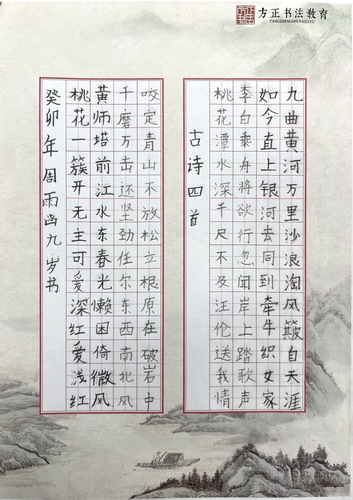 方正书法教育
FANGZHENGSHUFAJIAOYU
九曲黄河万里沙浪淘风簸自天涯
如今直上银河去同到牵牛织女家
李白乘舟将欲行忽闻岸上踏歌声
桃花潭水深千尺不及汪伦送我情
古诗四首
咬定青山不放松立根原在破岩中
千磨万击还坚劲任尔东西南北风
黄师塔前江水东春光懒困倚微风
桃花一簇开无主可爱深红爱浅红
癸卯年周雨函九岁书